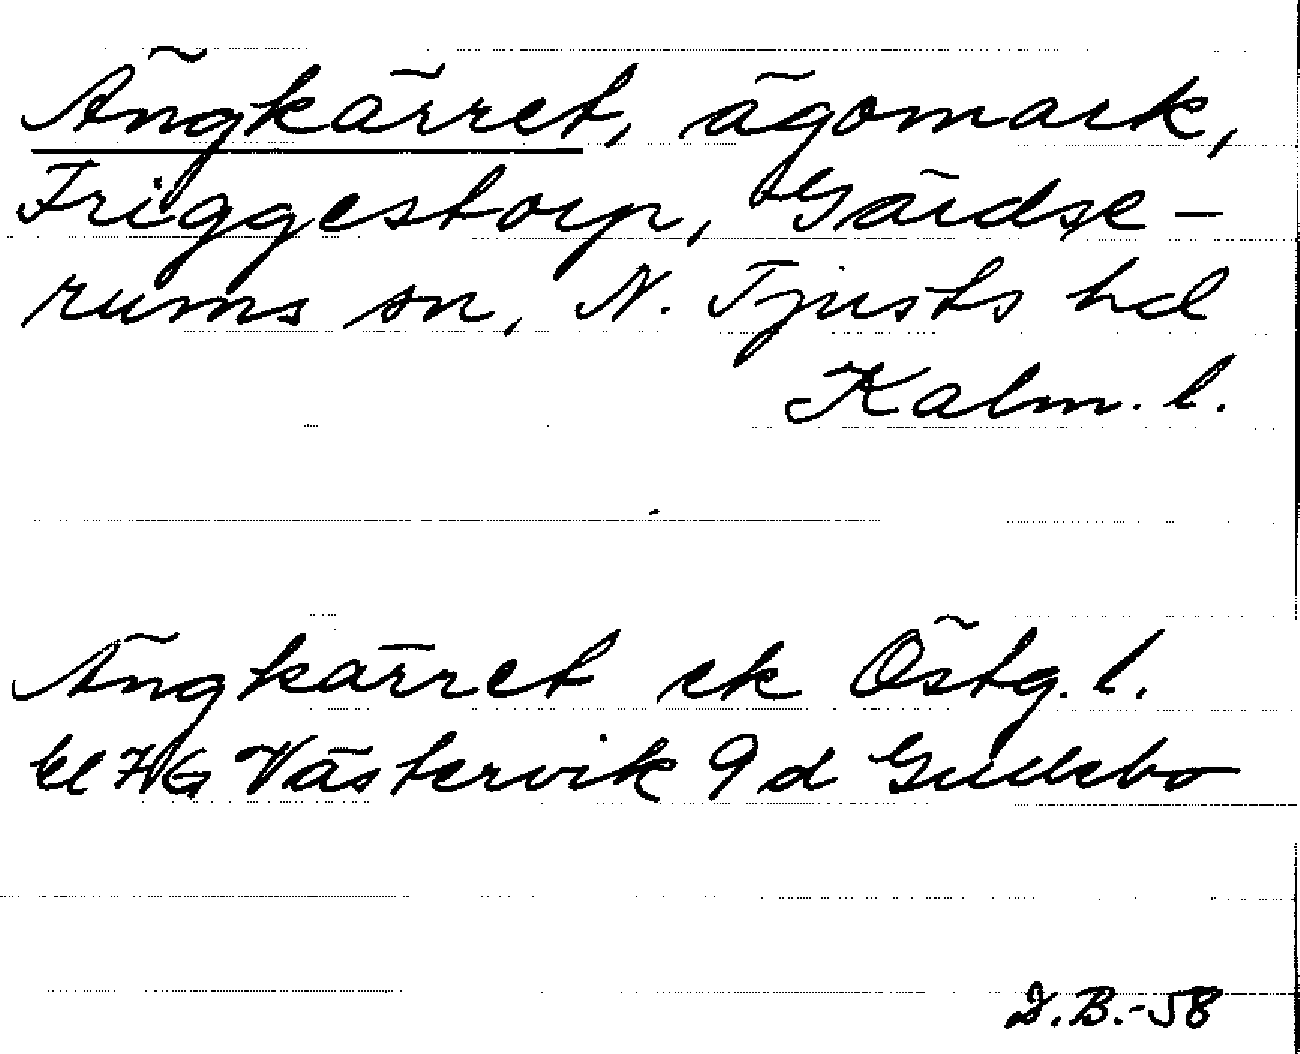 Ängkärret, ägomark,
Friggestorp, Gärdse-
rums sn, N. Tjusts hd
Kalm. l.
Ängkärret ek Östg. l.
bl Västervik 9 d Gudebo
D.B.-58